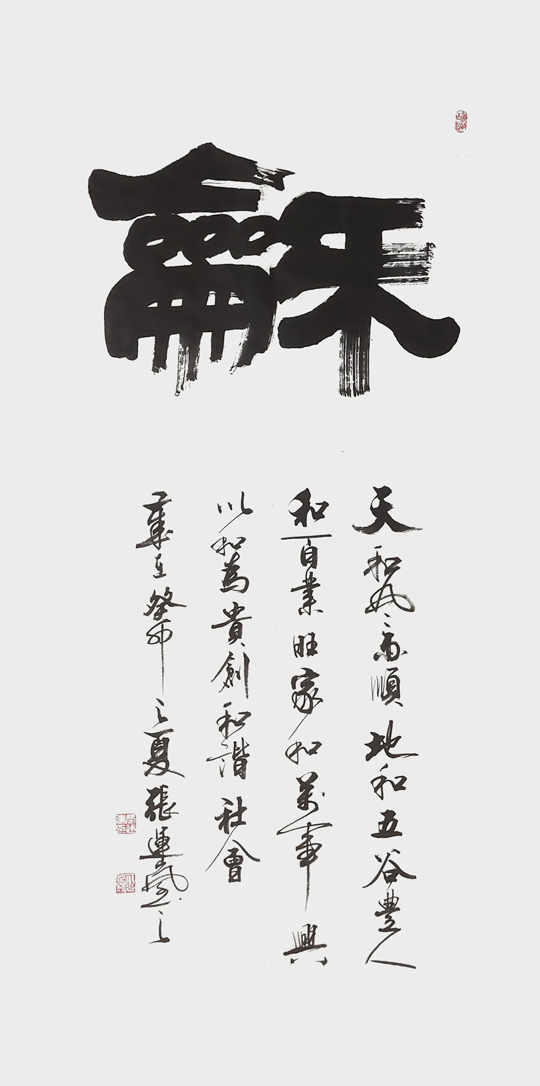 龢
天和風雨順地和五谷豐人
和百業旺家和萬事興
以和為貴創和諧社會
歲在癸卯之夏張運